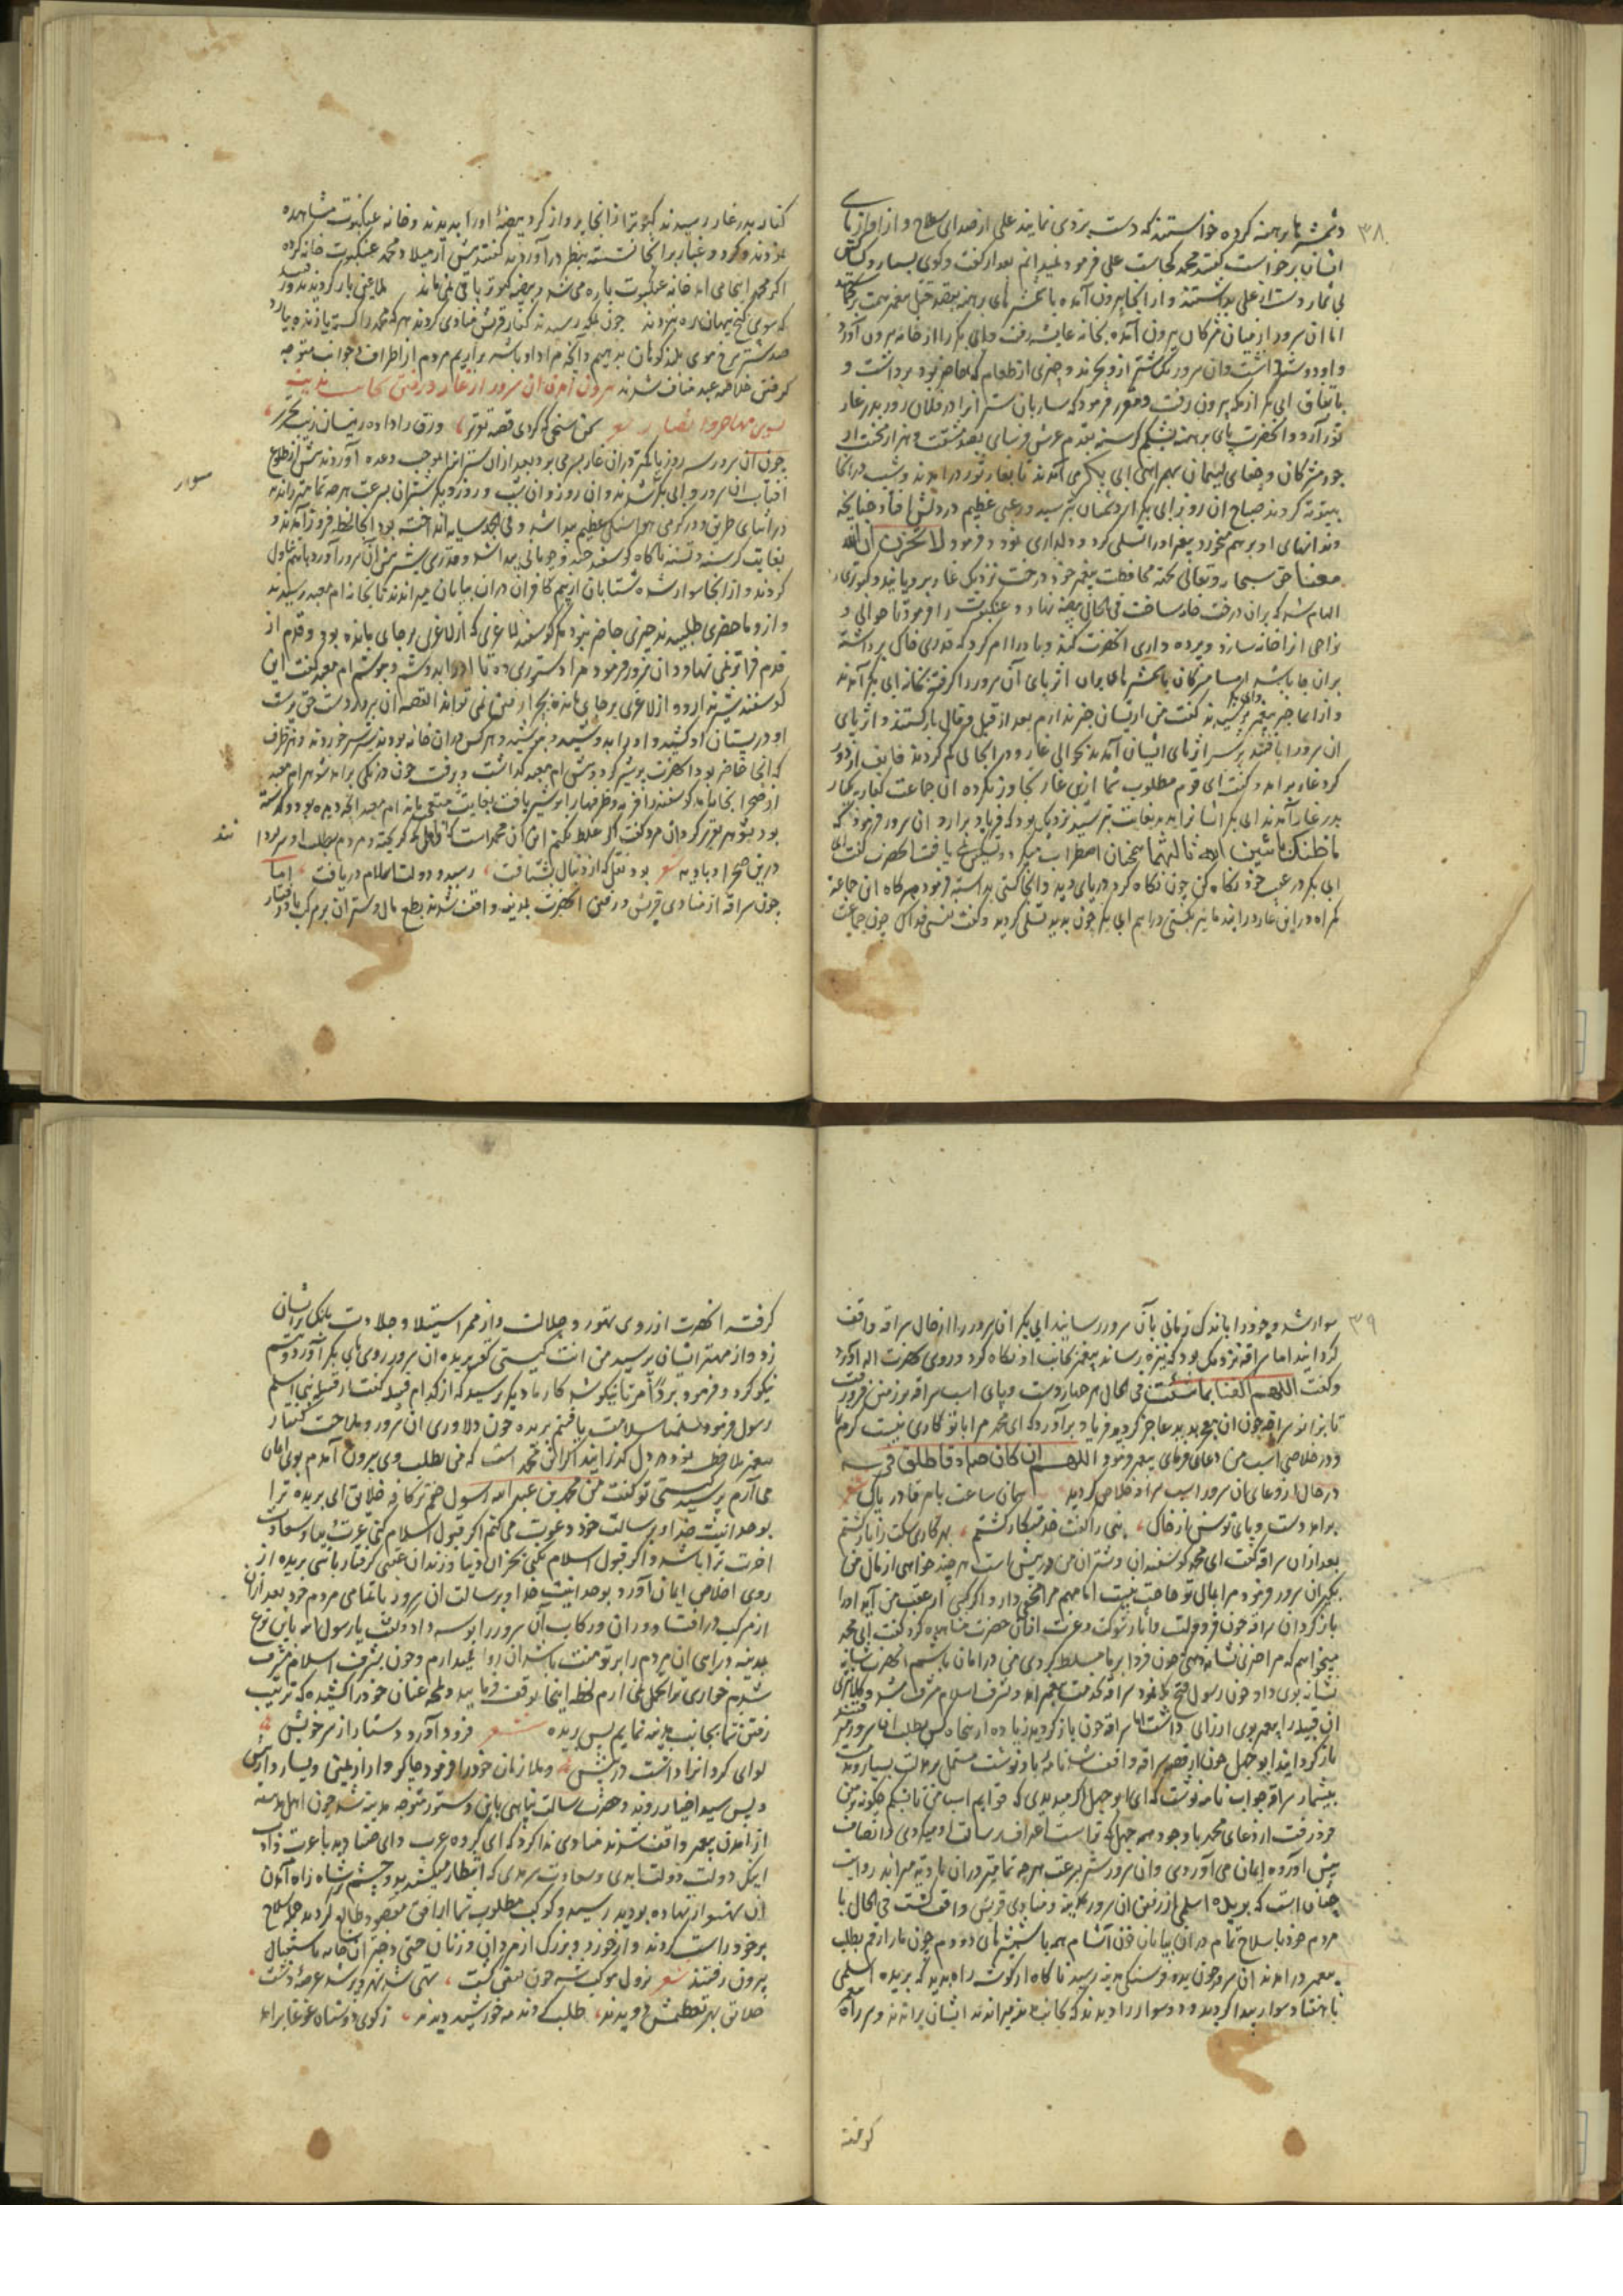 ۳۸
و شمشیرها برهنه کرده خواستند که دست بردی نمایند علی از صدای سلاح و از آواز پای
ایشان برخواست گفتند محمد کجاست علی فرمود نمیدانم بعد از گفت و کوی بسیار و
بی شمار دست از علی بداشتند و از آنجا بیرون آمده با شمشیرهای برهنه بقصد قتل پیغمبر همت
اما آن سرور از میان مشرکان بیرون آمده بخانه عایشه رفت و ابی بکر را از خانه بیرون آورد
و او دو شتر داشت و آن سرور یک شتر ازو بخرید و چیزی از طعام که حاضر بود برداشت و
باتفاق ابی بکر از مکه بیرون رفت و مقرر فرمود که ساربان شتر انرا در فلان روز بدر غار
ثور آرد و آنحضرت پای برهنه
جور مشرکان و جفای لئیمان بهمراهی ابی بکر می آمدند تا بغار ثور در آمدند و شب در انجا
بیتوته کردند صباح آن روز ابی بکر از دشمنان بترسید و رعبی عظیم در دلش افتاد چنانچه
دندانهای او بر هم میخورد پیغمبر او را تسلی کرد و دلداری نمود و فرمود لا تحزن ان الله
معنا حق سبحانه و تعالی بجهة محافظت پیغمبر خود درختی نزدیک غار برویانید و کبوتری را
الهام شد که بران درخت خانه ساخت فی الحال بیضه نهاد و عنکبوت را فرمود تا حوالی و
نواحی انرا خانه سازد و پرده داری آنحضرت کند و باد را امر کرد که قدری خاک برداشته
بران جا پاشد اما مشرکان با شمشیرهای بران اثر پای آن سرور را گرفته بخانه ابی بکر آمدند
و از اسما خبر پیغمبر و ابی بکر پرسیدند گفت من از ایشان خبر ندارم بعد از قیل و قال بازگشتند و اثر پای
ان سرور را یافتند بر سر اثر پای ایشان آمدند بحوالی غار و در انجا پی گم کردند قایف از دور
گرد غار برآمد و گفت ای قوم مطلوب شما ازین غار تجاوز نکرده آن جماعت کفار
بدر غار آمدند ابی بکر ایشانرا بدید بغایت بترسید نزدیک بود که فریاد برارد آن سرور فرمود که
ما ظنک باثنین الله ثالثهما همچنان اضطراب میکرد و تسکین نمی یافت آنحضرت گفت
ابی بکر در عقب خود نگاه کن چون نگاه کرد دریای دید و آنجا کشتی بد بسته فرمود هرگاه ان جماعة
گمراه درین غار درایند ما نیز بکشتی دراییم ابی بکر چون بدید تسلی گردید و گفت چون جماعت
کفار بدر غار رسیدند کبوتر از انجا پرواز کرد بیضهٔ او را بدیدند و خانه عنکبوت مشاهده
نمودند و گرد و غبار بر انجا نشسته بنظر در آوردند گفتند پیش از میلاد محمد عنکبوت خانه کرده
اگر محمد اینجا می آمد خانه عنکبوت پاره می شد و بیضه کبوتر باقی نمی ماند
چون بمکه رسیدند کفار قریش منادی کردند هر که محمد را کشته یا زنده بیارد
صد شتر سرخ موی بلند کوهان بدهیم و آنچه مراد او باشد براریم مردم از اطراف و جوانب متوجه
گرفتن خلاصه عبد مناف شدند بیرون آمدن آن سرور از غار و رفتن بجانب مدینه
بسوی مهاجر و انصار شعر سخن سنجی که کردی قصه تقریر ورق را داده زینسان زیب تحریر
چون آن سرور سه روز با بکر در آن غار بسر می برد بعد از آن شتر انرا بموجب وعده آوردند پیش از طلوع
آفتاب آن سرور و ابی بکر سوار شدند و آن روز و آن شب و روز دیگر شتران بسرعت هر چه تمامتر راندند
در اثنای طریق در گرمی هوا سنگی عظیم پیدا شد و فی الجمله سایه انداخته بود آنجا لحظهٔ فرود آمدند و
بغایت گرسنه و تشنه ناگاه گوسفند چند و چوپانی پیدا شد و قدری شیر پیش آن سرور آورد باهم تناول
کردند و از آنجا سوار شده شتابان از بیم کافران در آن بیابان میراندند تا بخانه ام معبد رسیدند
و ازو ما حضری طلبیدند چیزی حاضر نبود مگر گوسفند لاغری که از لاغری بر جای مانده بود و قدم از
قدم فراتر نمی نهاد و آن سرور فرمود مرا دستوری ده تا او را بدوشم و بنوشم ام معبد گفت این
گوسفند شیر ندارد و از لاغری بر جای مانده بچرا رفتن نمی تواند القصه آن سرور دست حق پرست
او در پستان او کشید و او را بدوشید و نوشید و هر کس در آن خانه بودند شیر خوردند و هر ظرف
که آنجا حاضر بود آنحضرت پر شیر کرد و پیش ام معبد گذاشت و برفت چون در بیک برآمد شوهر ام معبد
از صحرا بخانه آمد گوسفند را فربه و ظرفها را پر شیر یافت بغایت متعجب ماند ام معبد آنچه دیده بود و گذشته
بود بشوهر تقریر کرد آن مرد گفت اگر غلط نکنم این آن محمد است که از مکه گریخته و مردم بطلب او سر
درین صحرا و بادیه شعر بود نقلی که از دنبال بشتافت رسید و دولت اسلام دریافت اما
چون سراقه از منادی قریش و رفتن آنحضرت بمدینه واقف شدند بطمع مال و شتران بر مرکب باد رفتار
سوار
ند
۳۹
سوار شد و خود را باندک زمانی بآن سرور رسانید ابی بکر آن سرور را از حال سراقه واقف
گردانید اما سراقه نزدیک بود که نیزه رساند پیغمبر بجانب او نگاه کرد و روی بحضرت اله آورد
و گفت اللهم اکفنا بما شئت فی الحال هر چهار دست و پای اسب سراقه بر زمین فرو رفت
تا بزانو سراقه چون آن معجزه بدید عاجز گردید فریاد برآورد که ای محمد مرا با تو کاری نیست کرم نما
و در خلاصی اسب من دعای فرمای پیغمبر فرمود اللهم ان کان صادقا فاطلق فرسه
در حال از دعای آن سرور اسب سراقه خلاص گردید شعر همان ساعت بامر قادر پاک
برآمد دست و پای توسن از خاک نبی را گفت خدمتکار گشتم بهر کاری سکت را یار گشتم
بعد از آن سراقه گفت ای محمد گوسفندان و شتران من در پیش است هر چند خواهی از مال من
بگیر آن سرور فرمود مرا بمال تو حاجت نیست اما مهم مرا مخفی دار و اگر کسی از عقب من آید او را
باز گردان سراقه چون فر دولت و آثار شوکت و عزت از آن حضرت مشاهده کرد گفت ای محمد
میخواهم که مرا خبری نشانه دهی چون فردا بر ما مسلط گردی من در امان باشم آنحضرت
نشانه بوی داد چون رسول فتح مکه نمود سراقه بخدمت پیغمبر آمد و بشرف اسلام مشرف شد
آن قبیله را پیغمبر بوی ارزانی داشت اما سراقه چون باز گردید زیاده از پنجاه کس بطلب آن سرور
باز گردانید ابو جهل چون از قصه سراقه واقف شد نامهٔ باو نوشت مشتمل بر ملامت بسیار و
بیشمار سراقه جواب نامه نوشت که ای ابو جهل اگر میدیدی که قوایم اسب من تا شکم چگونه بزمین
فرو رفت از دعای محمد با وجود همه جهل که تراست اعتراف برسالت او میکردی و انصاف
پیش آورده ایمان می آوردی و آن سرور شتر بسرعت هر چه تمامتر در آن بادیه میراند روایت
چنان است که بریده اسلمی از رفتن آن سرور بمدینه و منادی قریش واقف گشت فی الحال با
مردم خود با سلاح تمام در آن بیابان خون آشام همه با شمشیرهای دو دم چون مار ارقم بطلب
پیغمبر در آمدند آن سرور چون بده فرسنگی مدینه رسید ناگاه از گوشه راه بدید که بریده اسلمی
با هفتاد سوار پیدا گردید و دو سوار را دیدند که بجانب مدینه میراندند ایشان براندند و سر راه
گرفته
گرفته آنحضرت از روی تهور و جلالت و از ممر استیلا و جلادت بانگ بر ایشان
زد و از مهتر ایشان پرسید من انت کیستی گفت بریده آن سرور روی بابی بکر آورد و تبسم
نیکو کرد و فرمود برد امرنا نیکو شد کار ما دیگر پرسید که از کدام قبیله گفت از قبیله بنی اسلم
رسول فرمود سلمنا سلامت یافتیم بریده چون دلاوری آن سرور و ملاحت گفتار
پیغمبر ملاحظه نمود در دل گذرانید اگر این محمد است که من بطلب وی بیرون آمدم بوی ایمان
می آرم پرسید کیستی تو گفت من محمد بن عبد الله رسول ختم کافهٔ خلایق ای بریده ترا
بوحدانیت خدا و برسالت خود دعوت می کنم اگر قبول اسلام کنی عزت دنیا و سعادت
اخرت ترا باشد و اگر قبول اسلام نکنی بخزلان دنیا و زندان عقبی گرفتار باشی بریده از
روی اخلاص ایمان آورد بوحدانیت خدا و برسالت آن سرور با تمامی مردم خود بعد از آن
از مرکب در افتاد و ران و رکاب آن سرور را بوسه داد و گفت یا رسول الله باین نوع
بمدینه درآی آن مردم را بر تو منت باشد آن روا نمیدارم و چون بشرف اسلام مشرف
شدم خواری ترا تحمل نمی آرم لحظه اینجا توقف فرمایید و لمحه عنان خود را کشیده که ترتیب
رفتن شما بجانب مدینه نمایم پس بریده شعر فرود آورد دستار از سر خویش
لوای کرد انرا داشت در پیش و ملازمان خود را فرمود چاکروار از یمین و یسار و از پیش
و پس سید اخیار روند و حضرت رسالت پناهی باین دستور متوجه مدینه شد چون اهل مدینه
از آمدن پیغمبر واقف شدند منادی ندا کرد که ای گروه عرب
اینک دولت دولت ابدی و سعادت سرمدی که انتظار میکشیدید و چشم بر شاه راه آمدن
آن نهاده بودید رسید و کوکب مطلوب شما از افق مقصود طالع گردید جمله سلاح
بر خود راست کردند و از خورد و بزرگ از مردان و زنان حتی دختران خانه باستقبال
بیرون رفتند شعر نزول موکب شه چون یقین گشت تهی شد شهر و پر شد عرصهٔ دشت
خلایق بهر تعظیمش دویدند طلب کردند مه خورشید دیدند ز کوی دوستان غوغا برآمد